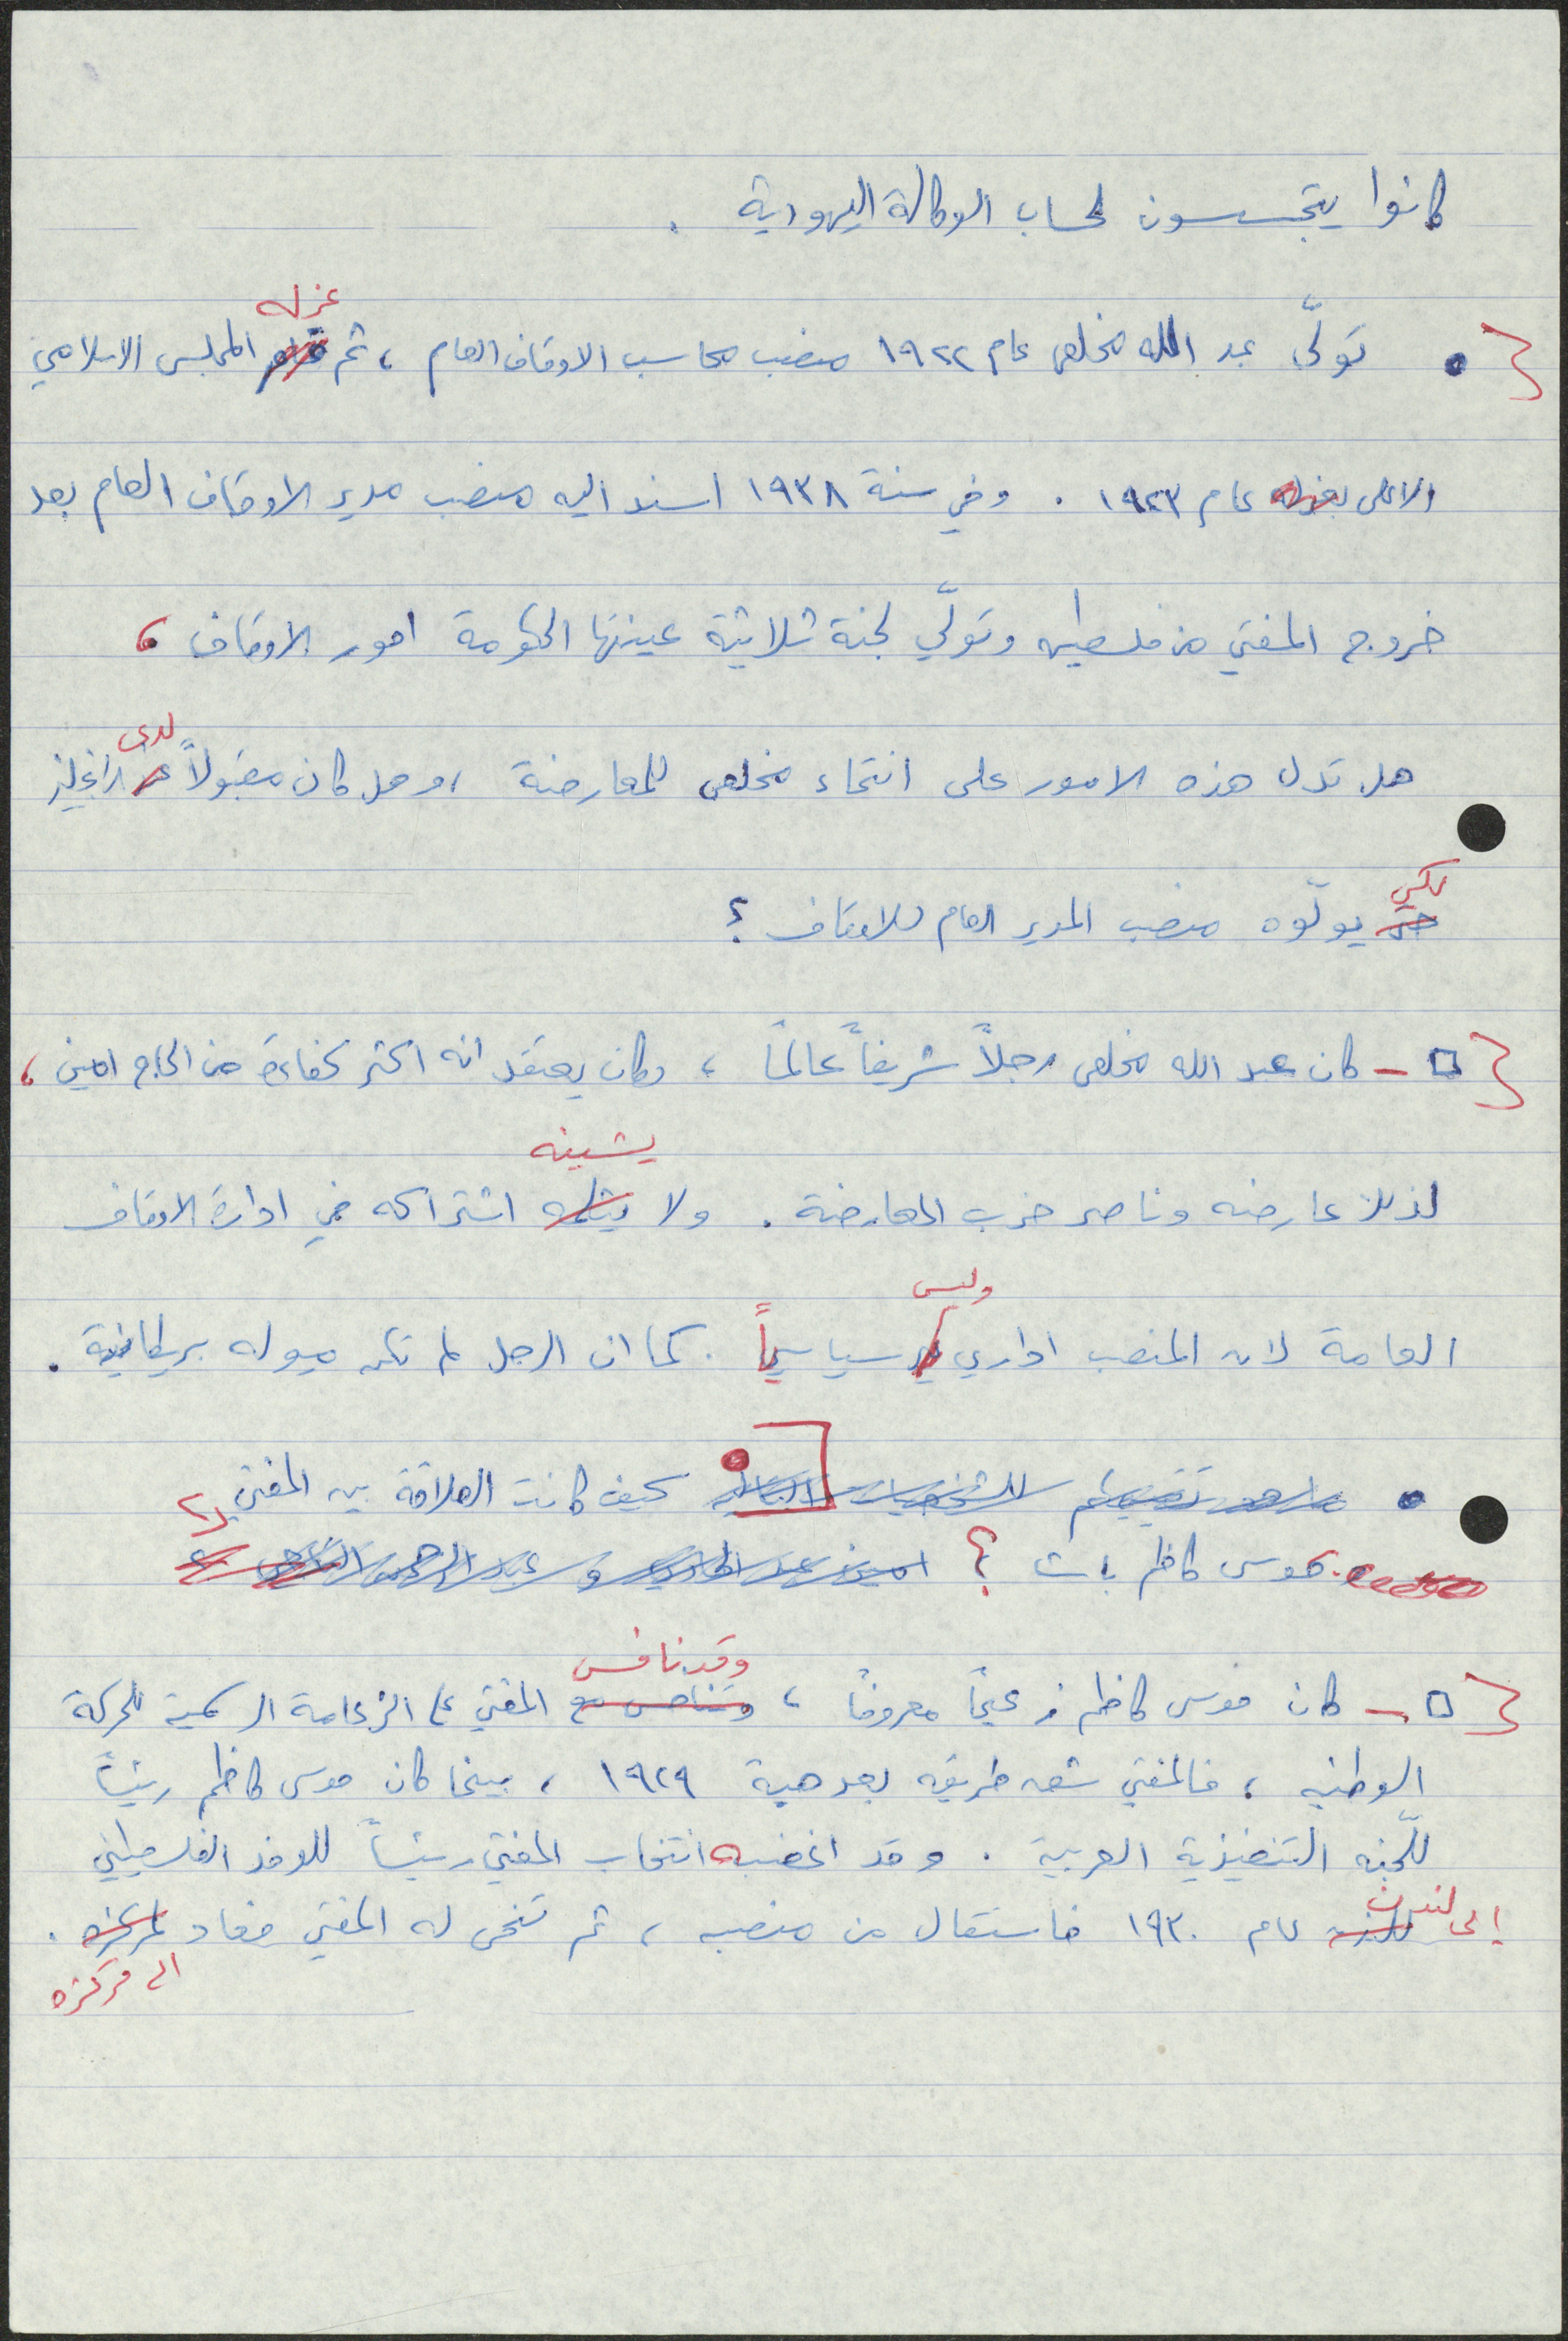 كانوا يتجسسون لحساب الوكالة اليهودية .
عزله
• تولّى عبد الله مخلص عام ١٩٢٢ منصب محاسب الاوقاف العام ، ثم المجلس الاسلامي
الاعلى بعزله عام ١٩٢٣ . وفي سنة ١٩٣٨ اسند اليه منصب مدير الاوقاف العام بعد
خروج المفتي من فلسطين وتولّي لجنة ثلاثية عينتها الحكومة امور الاوقاف ،
لدى
هل تدل هذه الامور على انتماء مخلص للمعارضة ، وهل كان مقبولاً عند الانجليز
لكي
حتى يولّوه منصب المدير العام للاوقاف ؟
□ – كان عبد الله مخلص رجلاً شريفاً عالماً ، وكان يعتقد انه اكثر كفاءة من الحاج امين ،
يشينه
لذلك عارضه وناصر حزب المعارضة . ولا اشتراكه في ادارة الاوقاف
وليس
العامة لان المنصب اداري سياسياً . كما ان الرجل لم تكن ميوله بريطانية .
• ما هو تقييمكم للشخصيات التالية كيف كانت العلاقة بين المفتي و
موسى كاظم باشا ؟ امين عبد الهادي وعبد الرحمن
وقد نافس
□ – كان موسى كاظم زعيماً معروفاً ، وتنافس مع المفتي على الزعامة الرسمية للحركة
الوطنيه ، فالمفتي شق طريقه بعد هبة ١٩٢٩ ، بينما كان موسى كاظم رئيساً
للّجنه التنفيذية العربية . وقد اغضبه انتخاب المفتي رئيساً للوفد الفلسطيني
إلى لندن
للندن عام ١٩٣٠ فاستقال من منصبه ، ثم تنحى له المفتي فعاد لمركزه .
الى مركزه